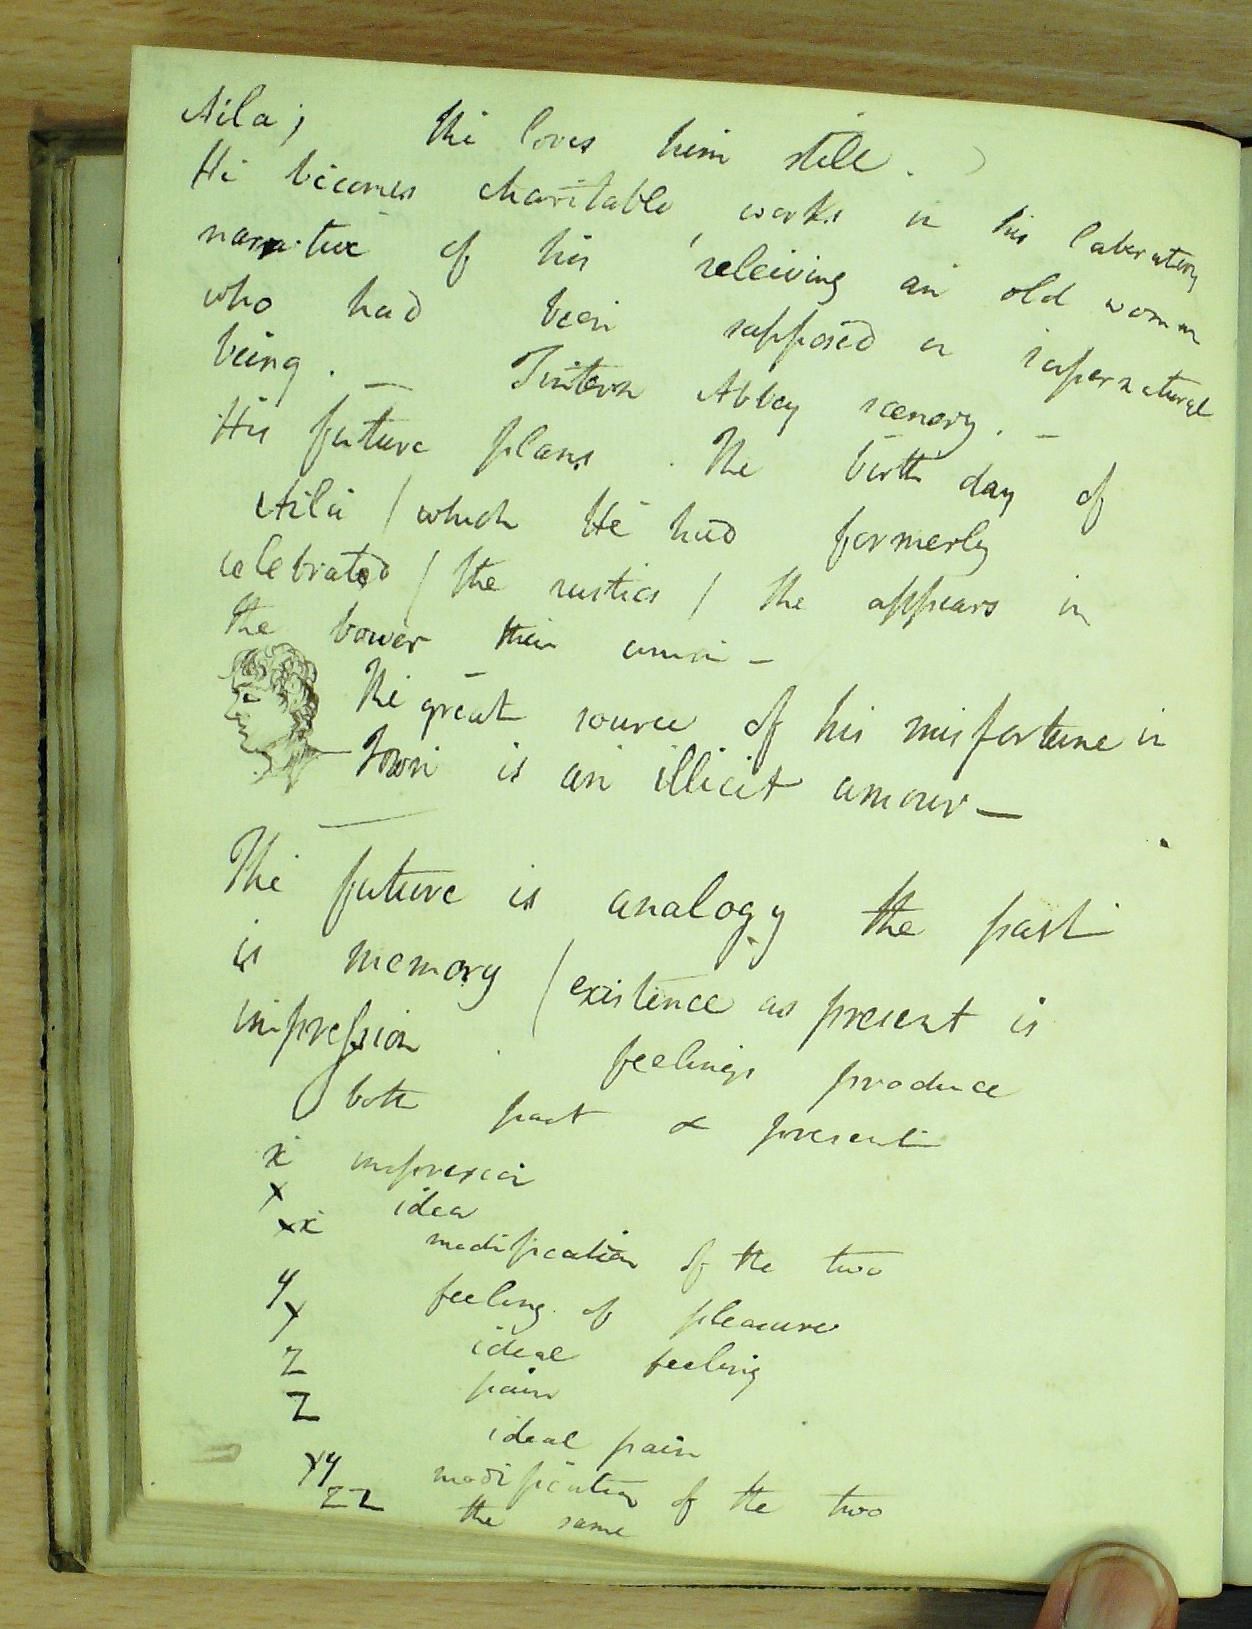 Aila; She loves him still.
He becomes charitable, works in his laboratory
narrative of his releiving an old woman
who had been supposed a supernatural
being. — Tintern Abbey scenery. —
His future plans. The birth day of
Aila / which He had formerly
celebrated / the rustics / She appears in
the bower their union —
The great source of his misfortune in
Town is an illicit amour —
The future is analogy the past
is memory / existence as present is
impression. feelings produce
both past & present
x impression
X idea
Xx modification of the two
y feeling of pleasure
Y ideal feeling
z pain
Z ideal pain
Yy modification of the two
Zz the same